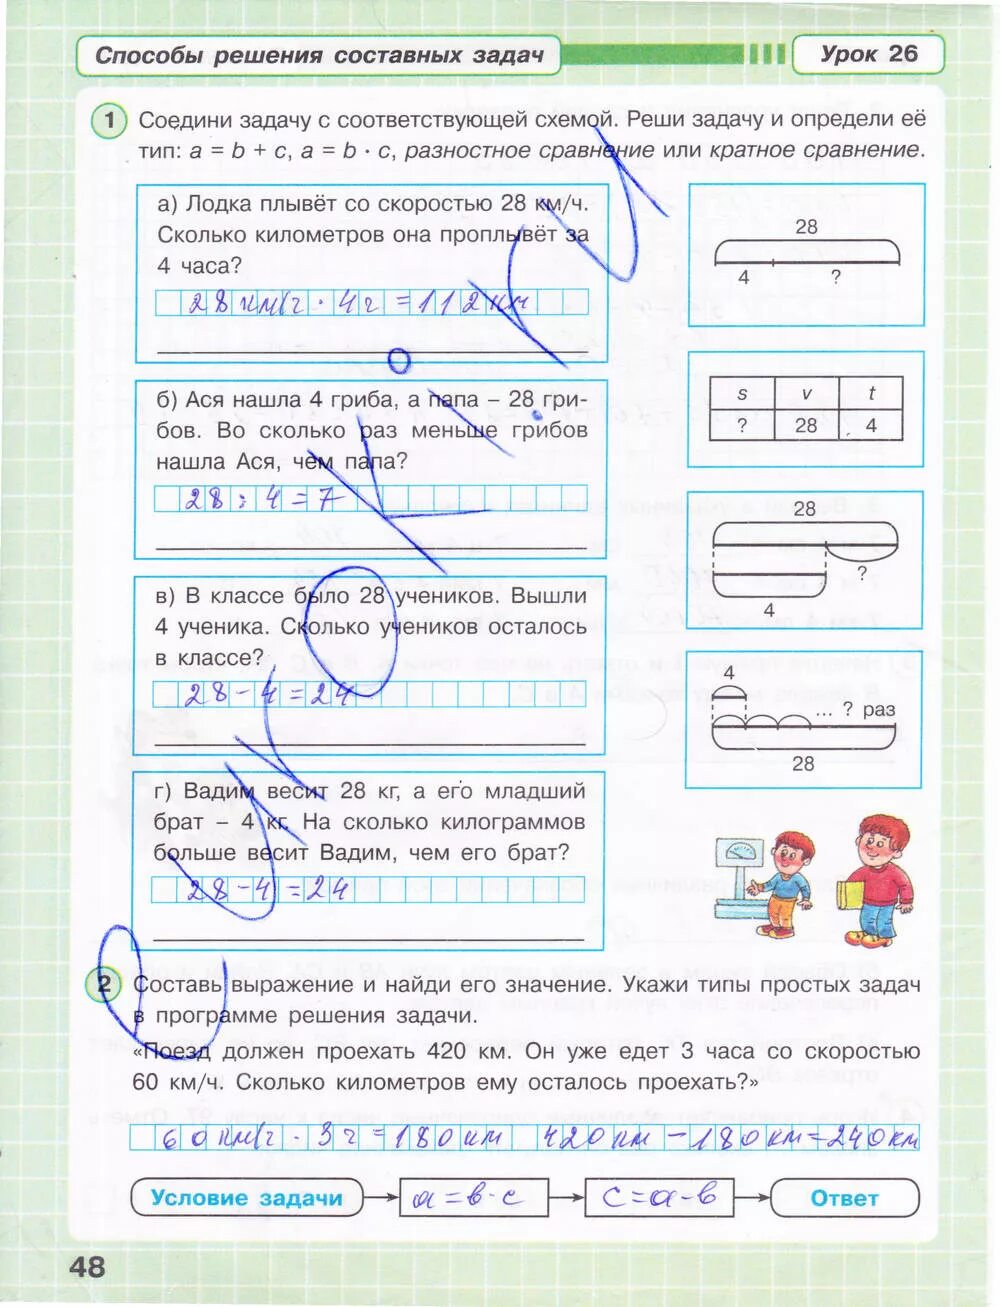 Способы решения составных задач
Урок 26
1 Соедини задачу с соответствующей схемой. Реши задачу и определи её
тип: a = b + c, a = b · c, разностное сравнение или кратное сравнение.
а) Лодка плывёт со скоростью 28 км/ч.
Сколько километров она проплывёт за
4 часа?
28 км/ч · 4ч = 112 км
б) Ася нашла 4 гриба, а папа – 28 гри-
бов. Во сколько раз меньше грибов
нашла Ася, чем папа?
28 : 4 = 7
в) В классе было 28 учеников. Вышли
4 ученика. Сколько учеников осталось
в классе?
28 - 4 = 24
г) Вадим весит 28 кг, а его младший
брат – 4 кг. На сколько килограммов
больше весит Вадим, чем его брат?
28 - 4 = 24
28
4 ?
s v t
? 28 4
28
?
4
4
... ? раз
28
2 Составь выражение и найди его значение. Укажи типы простых задач
в программе решения задачи.
«Поезд должен проехать 420 км. Он уже едет 3 часа со скоростью
60 км/ч. Сколько километров ему осталось проехать?»
60 км/ч · 3ч = 180 км 420 км - 180 км = 240 км
Условие задачи a = b · c c = a - b Ответ
48
P-UROKI.RU